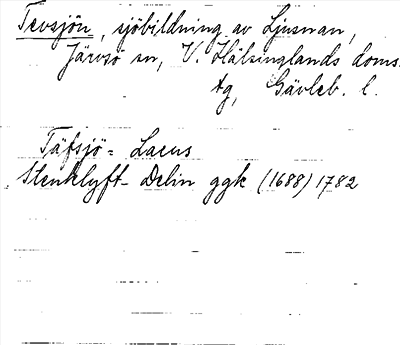 Tevsjön, sjöbildning av Ljusnan,
Järvsö sn, V. Hälsinglands doms.
tg, Gävleb. l.
Täfsjö = Lacus
Stenklyft- Delin ggk (1688) 1782